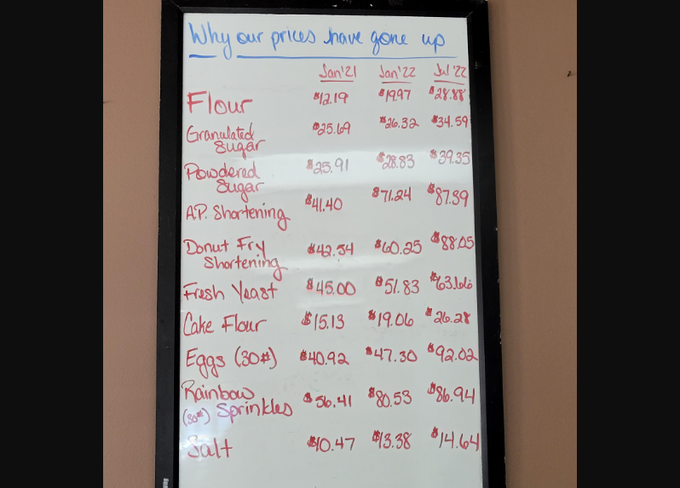 Why our prices have gone up
Jan'21 Jan'22 Jul'22
Flour $12.19 $19.97 $28.88
Granulated Sugar $25.69 $26.32 $34.59
Powdered Sugar $25.91 $28.83 $39.35
A.P. Shortening $41.40 $71.24 $87.39
Donut Fry Shortening $42.54 $60.25 $88.05
Fresh Yeast $45.00 $51.83 $63.66
Cake Flour $15.13 $19.06 $26.28
Eggs (30#) $40.92 $47.30 $92.02
Rainbow Sprinkles $56.41 $80.53 $86.94
Salt $10.47 $13.38 $14.64